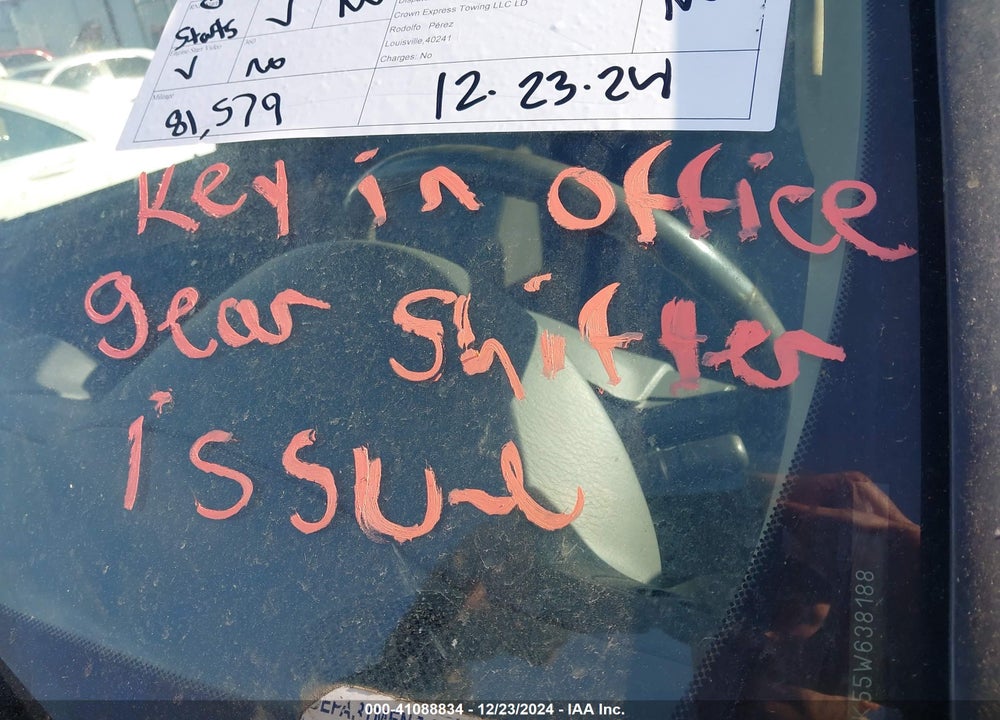 Crown Express Towing LLC LD
Starts ✓ No
Rodolfo Pérez
Louisville,40241
Charges: No
✓ No
Mileage
81,579
12.23.24
Key in office
gear shifter
issue
55W638188
000-41088834 - 12/23/2024 - IAA Inc.